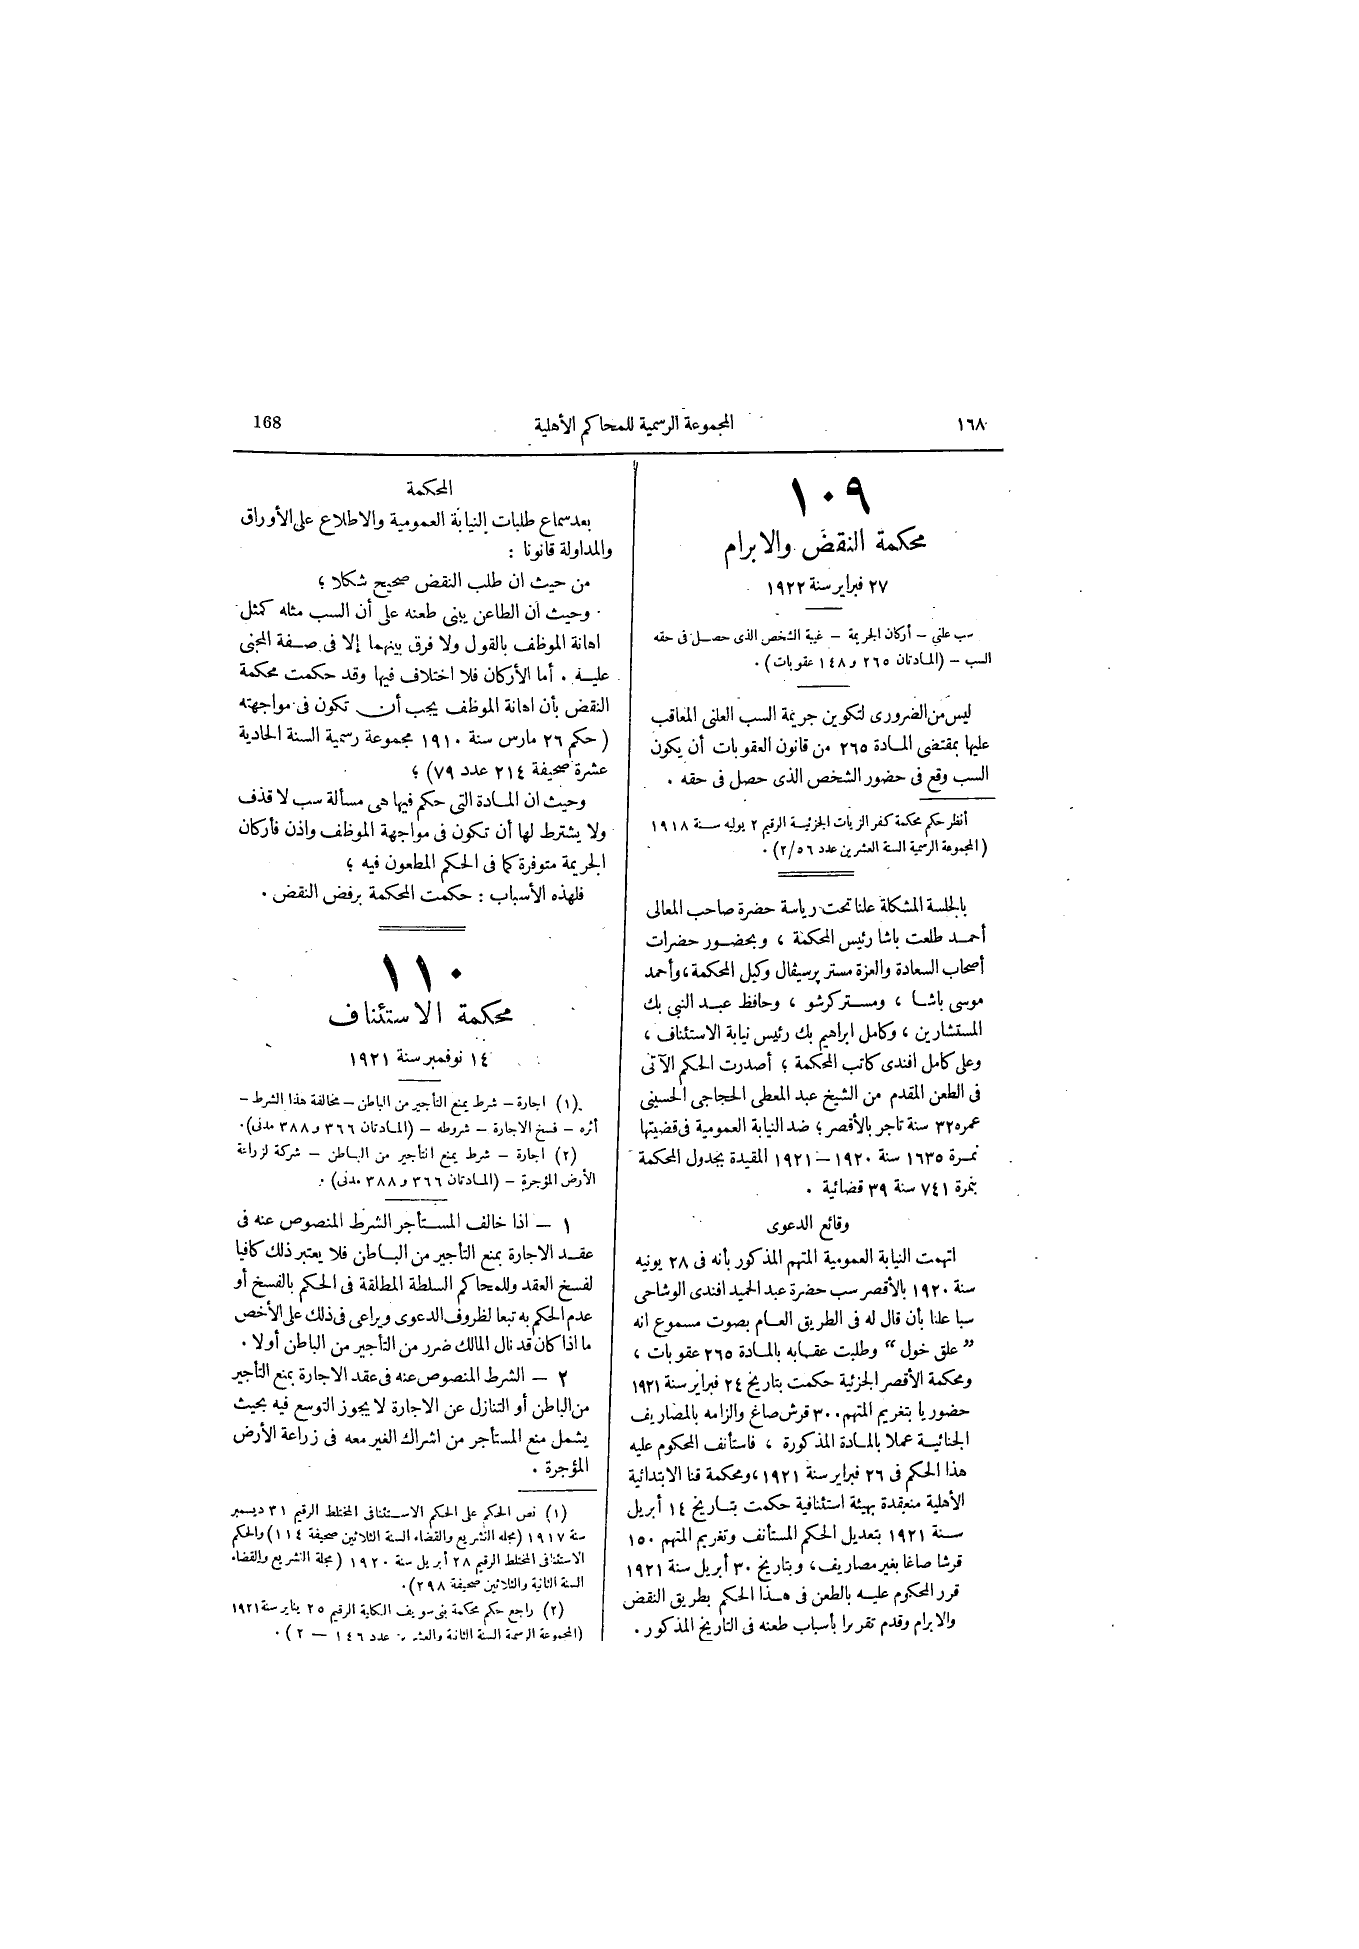 ١٦٨ المجموعة الرسمية للمحاكم الأهلية 168
١٠٩
محكمة النقض والابرام
٢٧ فبراير سنة ١٩٢٢
سب علني – أركان الجريمة – غيبة الشخص الذى حصل فى حقه
السب – (المادتان ٢٦٥ و ١٤٨ عقوبات) .
ليس من الضرورى لتكوين جريمة السب العلنى المعاقب
عليها بمقتضى المادة ٢٦٥ من قانون العقوبات أن يكون
السب وقع فى حضور الشخص الذى حصل فى حقه .
أنظر حكم محكمة كفر الزيات الجزئية الرقيم ٢ يوليه سنة ١٩١٨
(المجموعة الرسمية السنة العشرين عدد ٢/٥٦) .
بالجلسة المشكلة علنا تحت رياسة حضرة صاحب المعالى
أحمد طلعت باشا رئيس المحكمة ، وبحضور حضرات
أصحاب السعادة والعزة مستر پرسيڤال وكيل المحكمة ، وأحمد
موسى باشا ، ومستر كرشو ، وحافظ عبد النبي بك
المستشارين ، وكامل ابراهيم بك رئيس نيابة الاستئناف ،
وعلى كامل افندى كاتب المحكمة ؛ أصدرت الحكم الآتى
فى الطعن المقدم من الشيخ عبد المعطى الحجاجى الحسينى
عمره ٣٢ سنة تاجر بالأقصر ؛ ضد النيابة العمومية فى قضيتها
نمرة ١٦٣٥ سنة ١٩٢٠ – ١٩٢١ المقيدة بجدول المحكمة
بنمرة ٧٤١ سنة ٣٩ قضائية .
وقائع الدعوى
اتهمت النيابة العمومية المتهم المذكور بأنه فى ٢٨ يونيه
سنة ١٩٢٠ بالأقصر سب حضرة عبد الحميد افندى الوشاحى
سبا علنا بأن قال له فى الطريق العام بصوت مسموع انه
” علق خول “ وطلبت عقابه بالمادة ٢٦٥ عقوبات ،
ومحكمة الأقصر الجزئية حكمت بتاريخ ٢٤ فبراير سنة ١٩٢١
حضوريا بتغريم المتهم ٣٠٠ قرش صاغ والزامه بالمصاريف
الجنائية عملا بالمادة المذكورة ، فاستأنف المحكوم عليه
هذا الحكم فى ٢٦ فبراير سنة ١٩٢١ ، ومحكمة قنا الابتدائية
الأهلية منعقدة بهيئة استئنافية حكمت بتاريخ ١٤ أبريل
سنة ١٩٢١ بتعديل الحكم المستأنف وتغريم المتهم ١٥٠
قرشا صاغا بغير مصاريف ، وبتاريخ ٣٠ أبريل سنة ١٩٢١
قرر المحكوم عليه بالطعن فى هذا الحكم بطريق النقض
والابرام وقدم تقريرا بأسباب طعنه فى التاريخ المذكور .
المحكمة
بعد سماع طلبات النيابة العمومية والاطلاع على الأوراق
والمداولة قانونا :
من حيث ان طلب النقض صحيح شكلا ؛
وحيث ان الطاعن يبنى طعنه على أن السب مثله كمثل
اهانة الموظف بالقول ولا فرق بينهما إلا فى صفة المجنى
عليه . أما الأركان فلا اختلاف فيها وقد حكمت محكمة
النقض بأن اهانة الموظف يجب أن تكون فى مواجهته
(حكم ٢٦ مارس سنة ١٩١٠ مجموعة رسمية السنة الحادية
عشرة صحيفة ٢١٤ عدد ٧٩) ؛
وحيث ان المادة التى حكم فيها هى مسألة سب لا قذف
ولا يشترط لها أن تكون فى مواجهة الموظف واذن فأركان
الجريمة متوفرة كما فى الحكم المطعون فيه ؛
فلهذه الأسباب : حكمت المحكمة برفض النقض .
١١٠
محكمة الاستئناف
١٤ نوفمبر سنة ١٩٢١
(١) اجارة – شرط يمنع التأجير من الباطن – مخالفة هذا الشرط –
أثره – فسخ الاجارة – شروطه – (المادتان ٣٦٦ و ٣٨٨ مدنى) .
(٢) اجارة – شرط يمنع التأجير من الباطن – شركة لزراعة
الأرض المؤجرة – (المادتان ٣٦٦ و ٣٨٨ مدنى) .
١ – اذا خالف المستأجر الشرط المنصوص عنه فى
عقد الاجارة بمنع التأجير من الباطن فلا يعتبر ذلك كافيا
لفسخ العقد وللمحاكم السلطة المطلقة فى الحكم بالفسخ أو
عدم الحكم به تبعا لظروف الدعوى ويراعى فى ذلك على الأخص
ما اذا كان قد نال المالك ضرر من التأجير من الباطن أولا .
٢ – الشرط المنصوص عنه فى عقد الاجارة بمنع التأجير
من الباطن أو التنازل عن الاجارة لا يجوز التوسع فيه بحيث
يشمل منع المستأجر من اشراك الغير معه فى زراعة الأرض
المؤجرة .
(١) نص الحكم على الحكم الاستئنافى المختلط الرقيم ٣١ ديسمبر
سنة ١٩١٧ (مجلة التشريع والقضاء السنة الثلاثين صحيفة ١١٤) والحكم
الاستئنافى المختلط الرقيم ٢٨ أبريل سنة ١٩٢٠ (مجلة التشريع والقضاء
السنة الثانية والثلاثين صحيفة ٢٩٨) .
(٢) راجع حكم محكمة بنى سويف الكلية الرقيم ٢٥ يناير سنة ١٩٢١
(المجموعة الرسمية السنة الثانية والعشرين عدد ١٤٦ – ٢) .